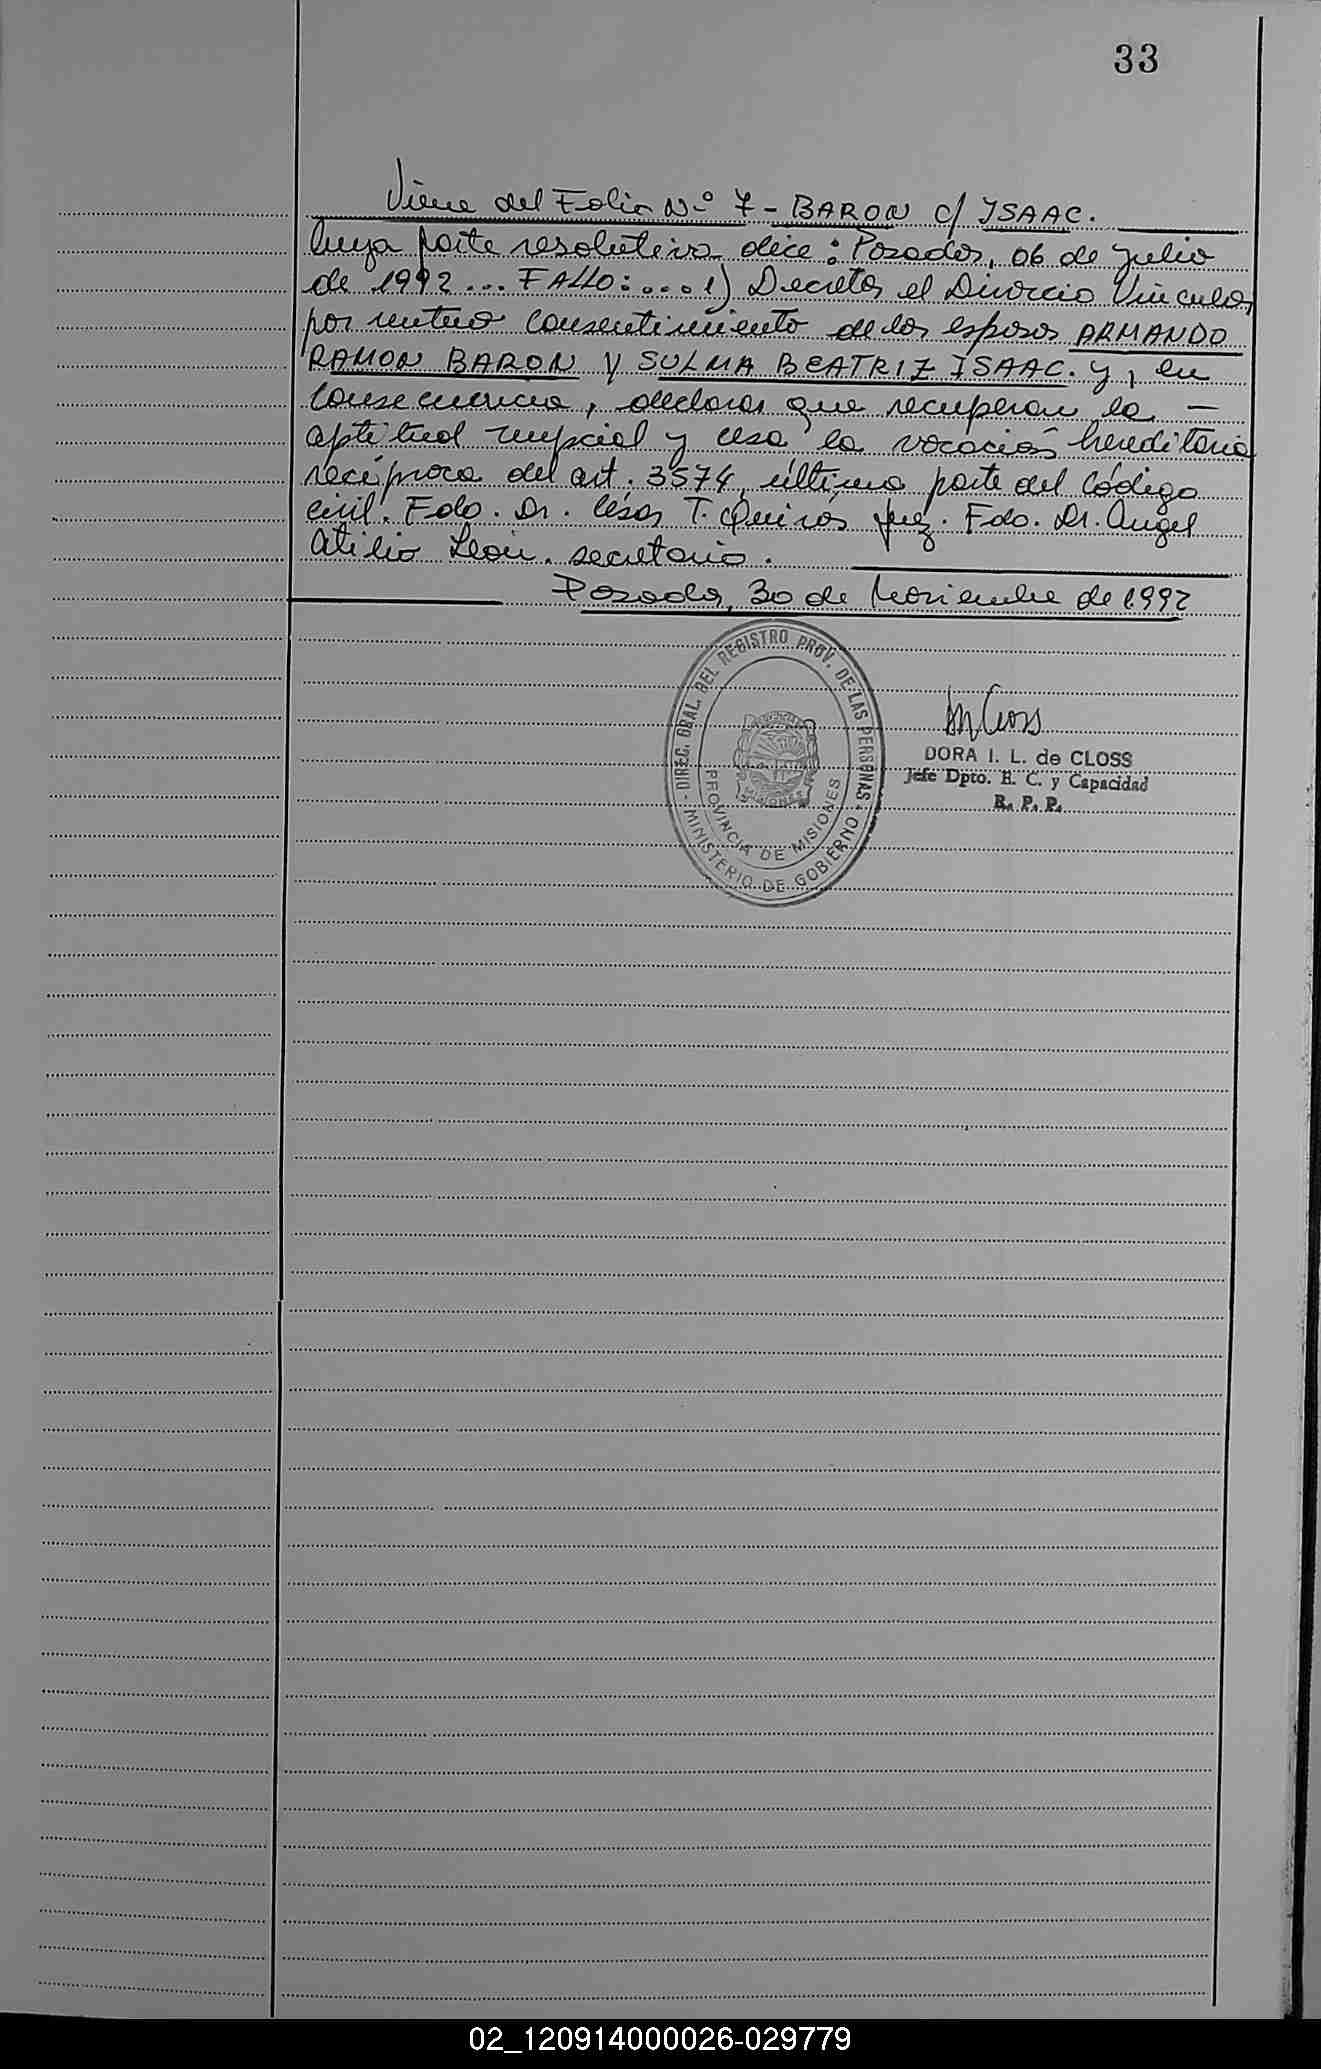 33
Viene del Folio Nº 7 - BARON c/ ISAAC.
Cuya parte resolutiva dice: Posadas, 06 de Julio
de 1992... FALLO:.... 1) Decretar el Divorcio Vincular
por mutuo consentimiento de los esposos ARMANDO
RAMON BARON y SULMA BEATRIZ ISAAC. y, en
Consecuencia, declarar que recuperan la —
aptitud nupcial y cesa la vocación hereditaria
recíproca del art. 3574, última parte del Código
civil. Fdo. Dr. César T. Quirós Juez. Fdo. Dr. Angel
Atilio León. secretario.
Posadas, 30 de Noviembre de 1992
DIREC. GRAL. DEL REGISTRO PROV. DE LAS PERSONAS
PROVINCIA DE MISIONES
MINISTERIO DE GOBIERNO
DORA I. L. de CLOSS
Jefe Dpto. E. C. y Capacidad
R. P. P.
02_120914000026-029779